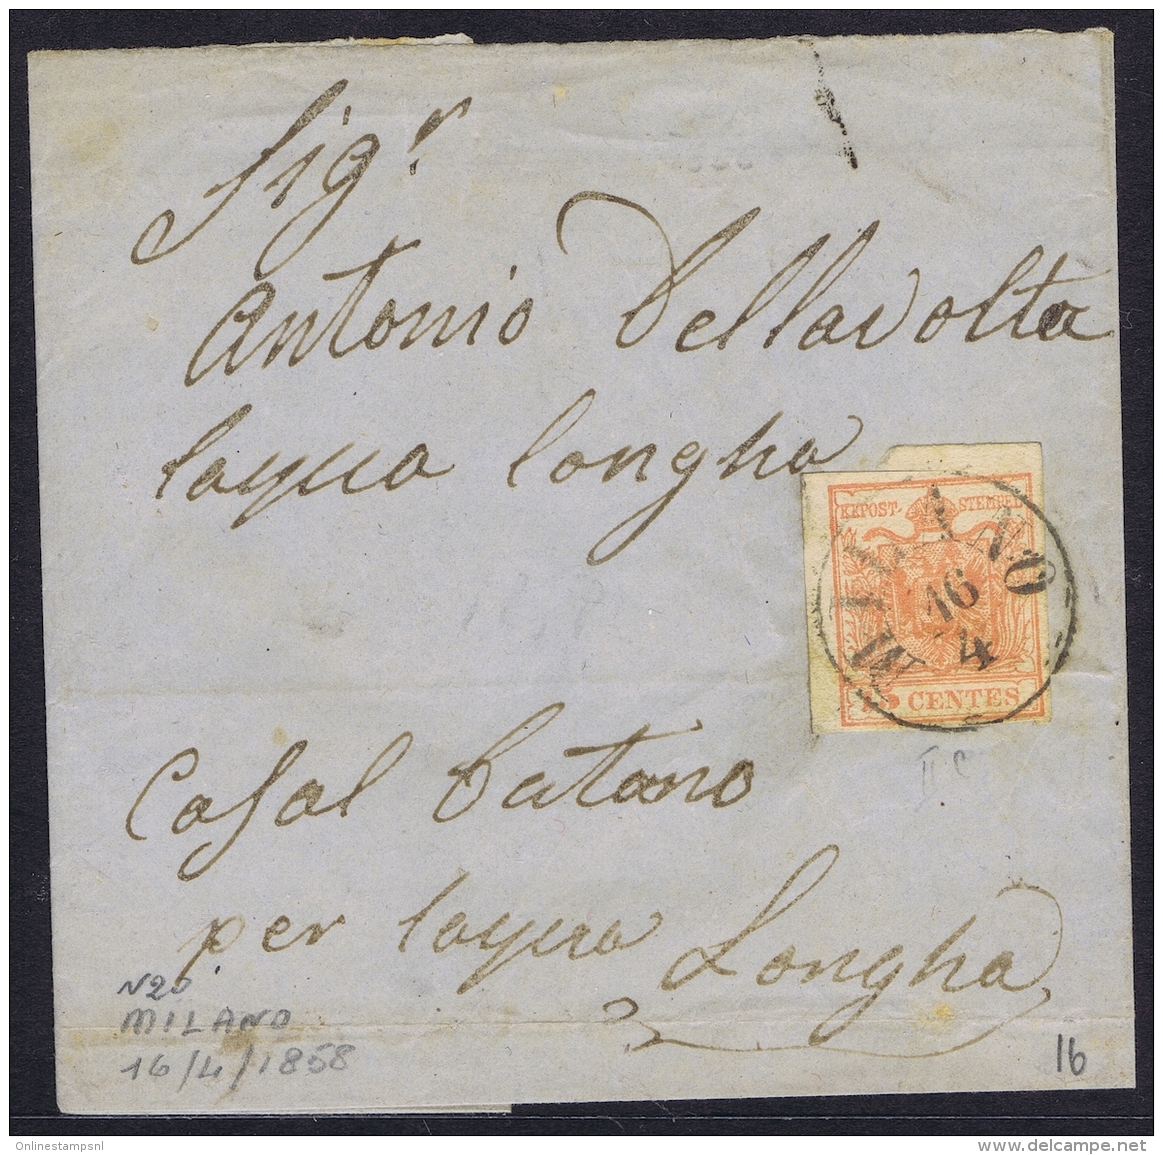 Sigr
Antonio Dellavolta
laqua longha
KKPOST-STEMPEL
MILANO
16
4
15 CENTES
II
Casal Butano
per laqua Longha
N20
MILANO
16/4/1858
16
Onlinestampsnl
www.delcampe.net